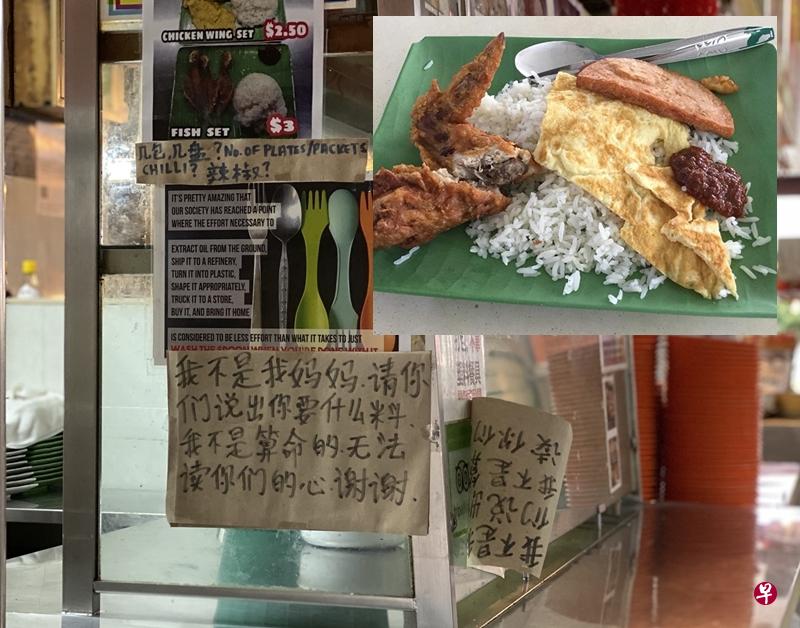 CHICKEN WING SET $2.50
FISH SET $3
几包,几盘?No. OF PLATES/PACKETS
CHILLI? 辣椒?
IT'S PRETTY AMAZING THAT
OUR SOCIETY HAS REACHED A POINT
WHERE THE EFFORT NECESSARY TO
EXTRACT OIL FROM THE GROUND,
SHIP IT TO A REFINERY,
TURN IT INTO PLASTIC,
SHAPE IT APPROPRIATELY,
TRUCK IT TO A STORE,
BUY IT, AND BRING IT HOME
IS CONSIDERED TO BE LESS EFFORT THAN WHAT IT TAKES TO JUST
WASH THE SPOON WHEN YOU'RE DONE WITH IT
我不是我妈妈.请你
们说出你要什么料.
我不是算命的.无法
读你们的心.谢谢.
我不是
们说出
我不是
读你们
早